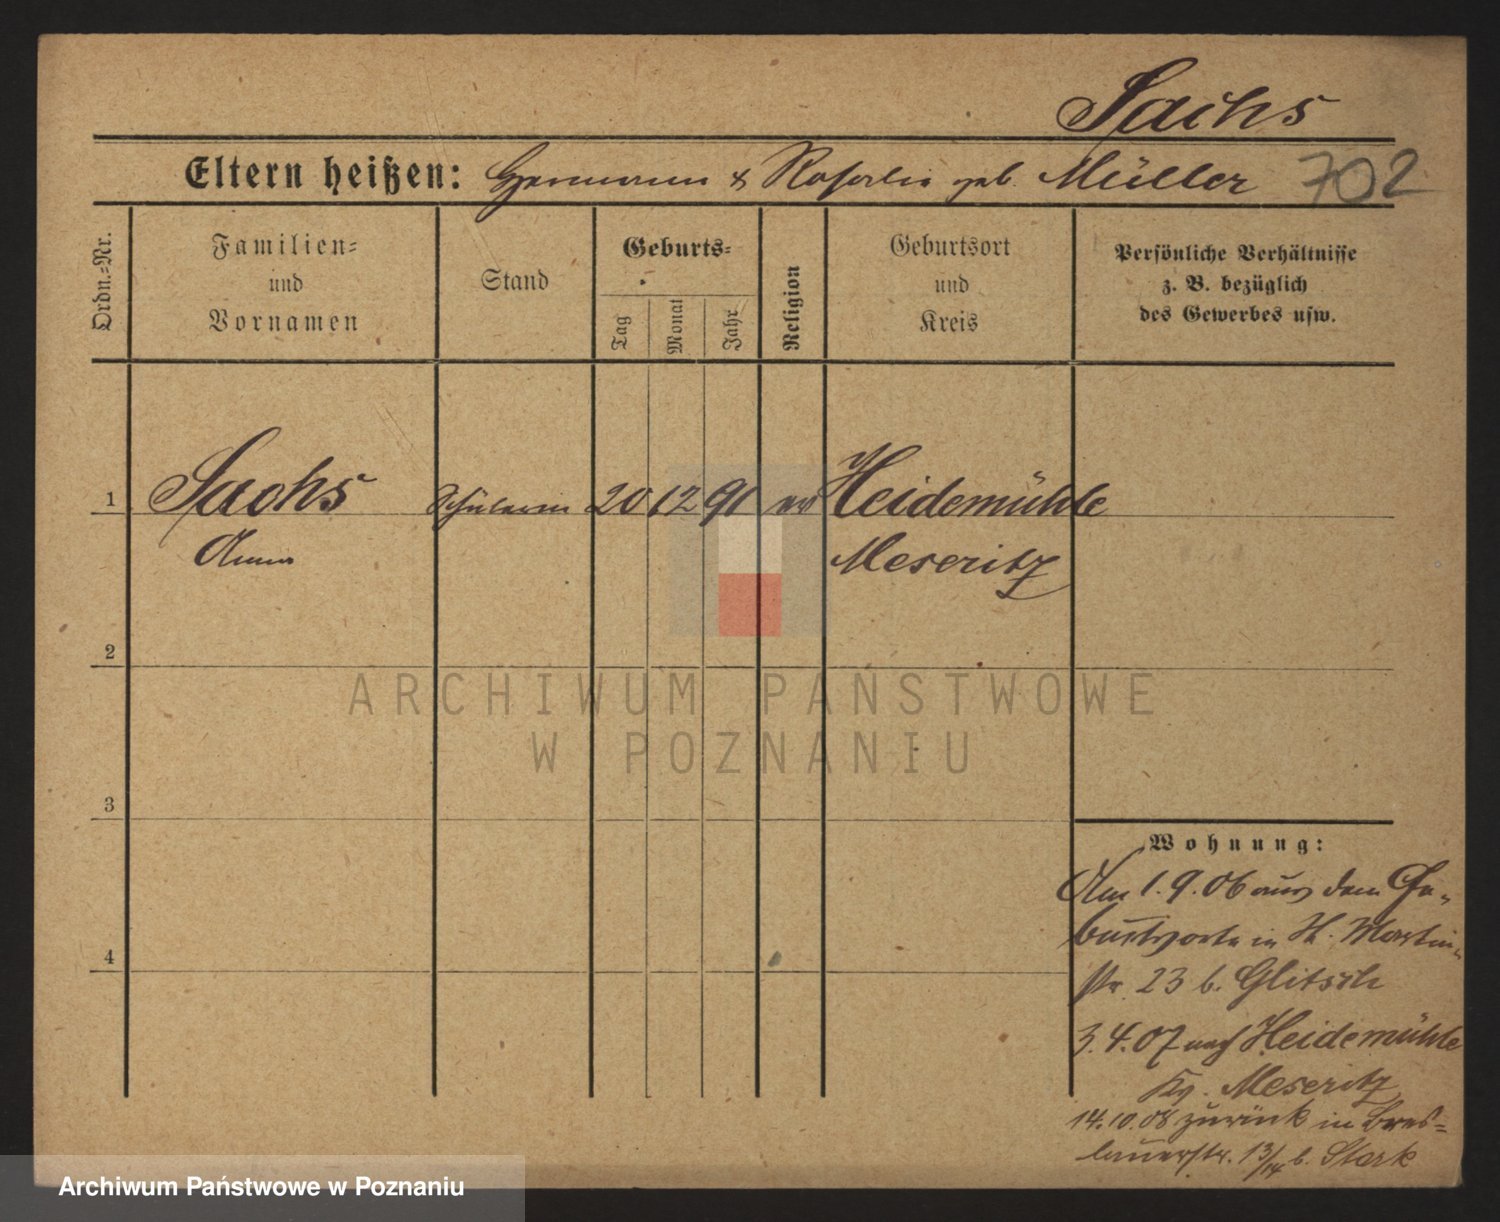 Sachs
Eltern heißen: Hermann & Rosalie geb. Müller 702
Ordn.=Nr.
Familien=
und
Vornamen
Stand
Geburts=
Tag
Monat
Jahr
Religion
Geburtsort
und
Kreis
Persönliche Verhältnisse
z. B. bezüglich
des Gewerbes usw.
1 Sachs Schülerin 20 12 91 ev Heidemühle
Anna Meseritz
2
ARCHIWUM PAŃSTWOWE
W POZNANIU
3
Wohnung:
Am 1.9.06 aus dem Ge-
burtsorte in St. Martin-
str. 23 b. Glitsch
4
3.4.07 nach Heidemühle
Kr. Meseritz
14.10.08 zurück in Bres=
lauerstr. 13/14 b. Stark
Archiwum Państwowe w Poznaniu